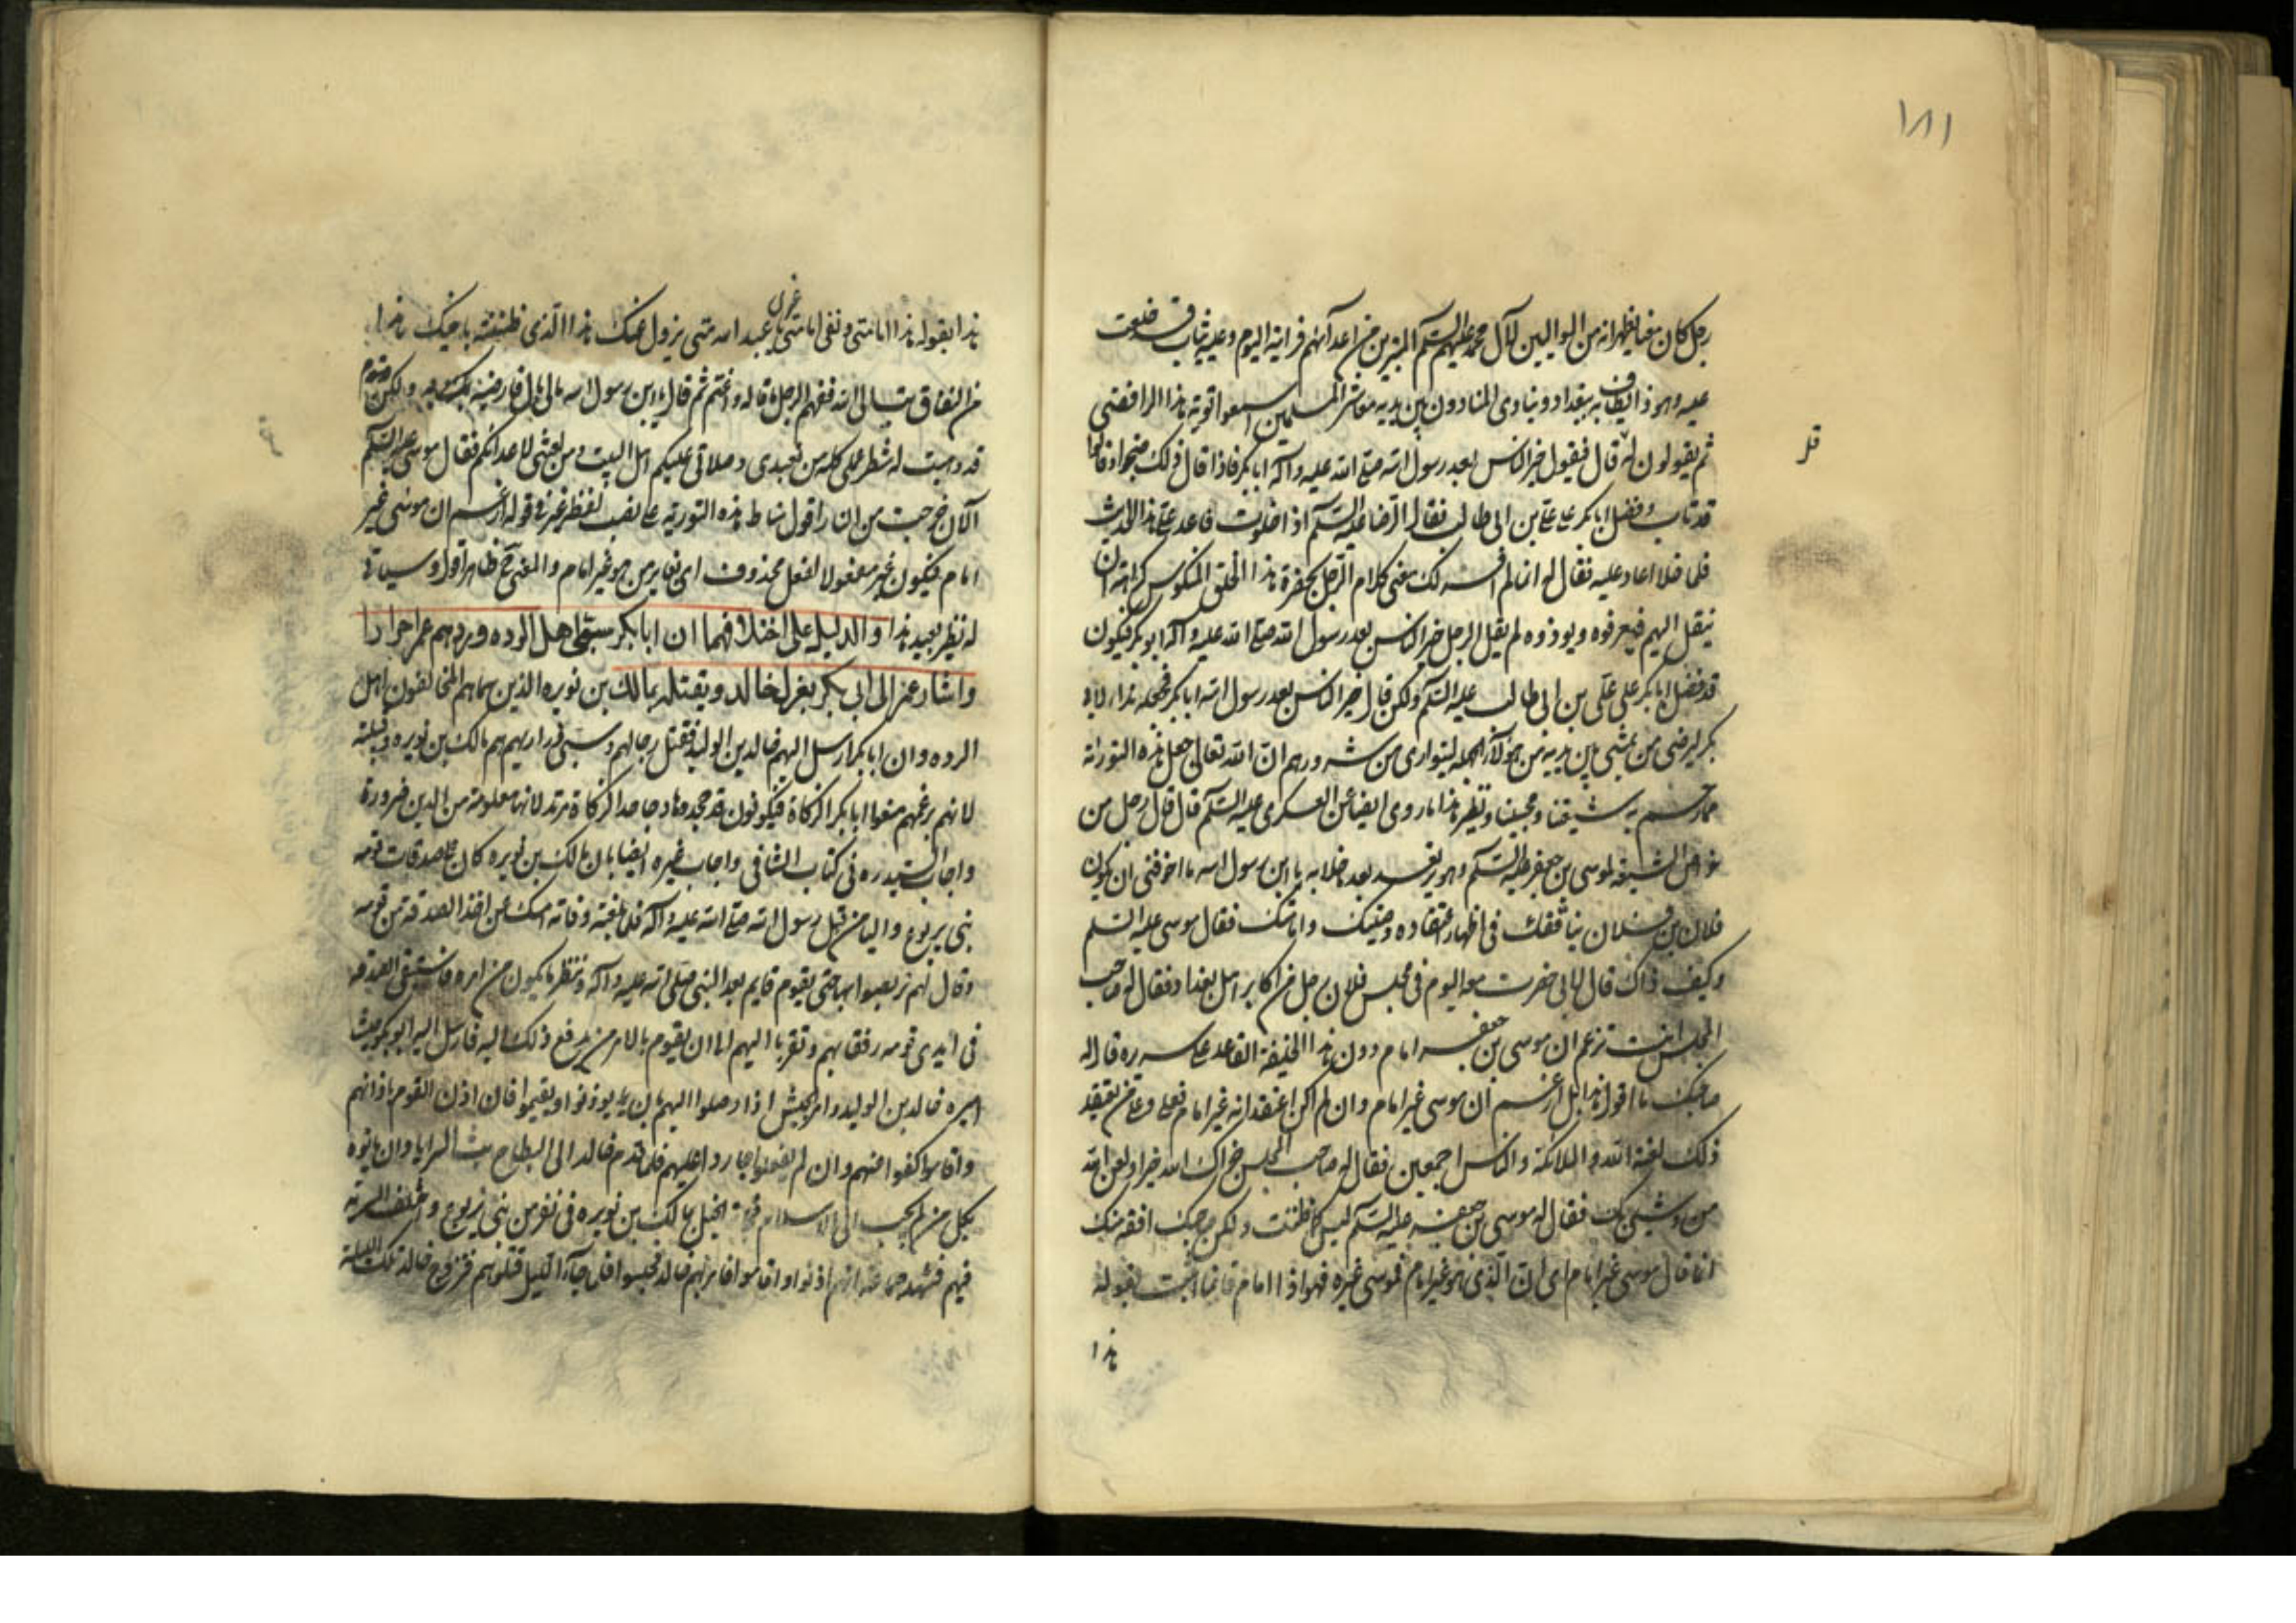 ١٨١
رجل كان معنا يظهر انه من الموالين لآل محمد عليهم السلم المتبرين من اعدآئهم فرايته اليوم وعليه ثياب قد خلعت
عليه وهو ذا يطاف به ببغداد وينادى المنادون بين يديه معاشر المسلمين اسمعوا توبة هذا الرافضى
ثم يقولون له قال فيقول خير الناس بعد رسول الله صلى الله عليه وآله ابا بكر فاذا قال ذلك ضجوا وقالوا
قل
قد تاب وفضل ابا بكر على على بن ابى طالب فقال الرضا عليه السلم اذا خلوت فاعد على هذا الحديث
فلما خلا اعاد عليه فقال له انا لم افسر لك معنى كلام الرجل بحضرة هذا الخلق المنكوس كراهة ان
ينقل اليهم فيعرفوه ويوذوه لم يقل الرجل خير الناس بعد رسول الله صلى الله عليه وآله ابو بكر فيكون
قد فضل ابا بكر على على بن ابى طالب عليه السلم ولكن قال خير الناس بعد رسول الله ابا بكر فجعله نداء لابى
بكر ليرضى من يمشى بين يديه من هولآء الجهلة ليتوارى من شرورهم ان الله تعالى جعل هذه التورية
مما رحم به شيعتنا ومحبينا ونظير هذا ما روى ايضا عن العسكرى عليه السلم قال قال رجل من
خواص الشيعة لموسى بن جعفر عليه السلم وهو يرتعد بعد ما خلا به يا ابن رسول الله ما اخوفنى ان يكون
فلان بن فلان ينافقك فى اظهار اعتقاده وصيتك وامامتك فقال موسى عليه السلم
وكيف ذاك قال لانى حضرت معه اليوم فى مجلس فلان رجل من اكابر اهل بغداد فقال له صاحب
المجلس انت تزعم ان موسى بن جعفر امام دون هذا الخليفة القاعد على سريره قال له
صاحبك ما اقول هذا بل ازعم ان موسى غير امام وان لم اكن اعتقد انه غير امام فعلى وعلى من يعتقد
ذلك لعنة الله والملائكة والناس اجمعين فقال له صاحب المجلس جزاك الله خيرا ولعن الله
من وشى بك فقال له موسى بن جعفر عليه السلم ليس كما ظننت ولكن صاحبك افقه منك
انما قال موسى غير امام اى ان الذى هو غير امام فموسى غيره فهو اذا امام فانما اثبت بقوله
هذا
هذا بقوله هذا امامتى ونفى امامة غيرى يا عبد الله متى يزول عنك هذا الذى ظننته باخيك هذا
من النفاق تب الى الله ففهم الرجل ما قاله واغتم ثم قال يا ابن رسول الله مالى مال فارضيه به ولكن
قد وهبت له شطر عملى كله من تعبدى وصلاتى عليكم اهل البيت ومن لعنتى لاعدائكم فقال موسى عليه السلم
الآن خرجت من النار اقول مناط هذه التورية على نصب لفظ غير فى قوله ازعم ان موسى غير
امام فيكون غير مفعولا لفعل محذوف اى يغاير من هو غير امام والمعنى ظاهرا وسيأتى
له نظير بعيد هذا والدليل على اختلافهما ان ابا بكر سبى اهل الرده وردهم عمر احرارا
واشار عمر الى ابى بكر بعزل خالد وبقتله بمالك بن نويره الذين سماهم المخالفون اهل
الرده وان ابا بكر ارسل اليهم خالد بن الوليد فقتل رجالهم وسبى ذراريهم هم مالك بن نويره وقبيلته
لانهم بزعمهم منعوا ابا بكر الزكاة فيكونون قد جحدوها وجاحد الزكاة مرتد لانها معلومة من الدين ضرورة
واجاب السيد ره فى كتاب الشافى واجاب غيره ايضا بان مالك بن نويره كان على صدقات قومه
بنى يربوع واليا من قبل رسول الله صلى الله عليه وآله فلما بلغته وفاته امسك عن اخذ الصدقة من قومه
وقال لهم تربصوا بها حتى يقوم قايم بعد النبى صلى الله عليه وآله وننظر ما يكون من امره فاستبقى الصدقة
فى ايدى قومه رفقا بهم وتقربا اليهم الى ان يقوم بالامر من يدفع ذلك اليه فارسل اليه ابو بكر جيشا
اميره خالد بن الوليد وامر الجيش اذا وصلوا اليهم بان يوذنوا ويقيموا فان اذن القوم باذانهم
واقاموا كفوا عنهم وان لم يفعلوا اغاروا عليهم فلما قدم خالد الى البطاح بث السرايا وان ياتوه
بكل من لم يجب الى الاسلام فجاءته الخيل بمالك بن نويره فى نفر من بنى يربوع واختلف السرية
فيهم فشهد جماعة انهم اذنوا واقاموا فامر بهم خالد فحبسوا فلما جآء الليل قتلوهم فتزوج خالد تلك الليلة